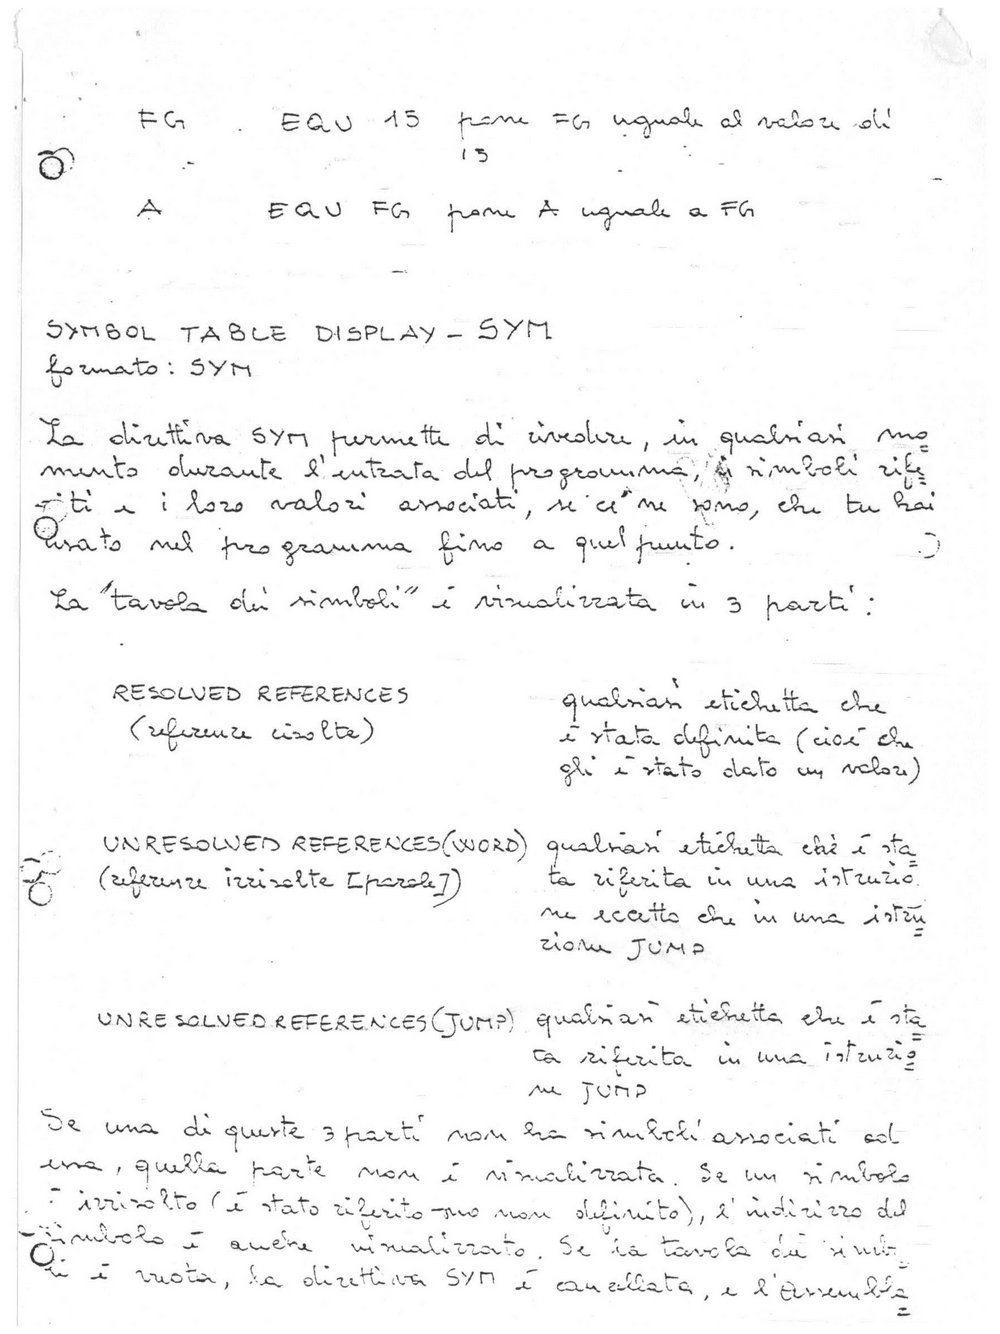 FG EQU 15 pone FG uguale al valore di
15
A EQU FG pone A uguale a FG
SYMBOL TABLE DISPLAY - SYM
formato: SYM
La direttiva SYM permette di rivedere, in qualsiasi mo=
mento durante l'entrata del programma, i simboli rife=
riti e i loro valori associati, se ce ne sono, che tu hai
usato nel programma fino a quel punto.
La "tavola dei simboli" è visualizzata in 3 parti:
RESOLVED REFERENCES qualsiasi etichetta che
(referenze risolte) è stata definita (cioè che
gli è stato dato un valore)
UNRESOLVED REFERENCES (WORD) qualsiasi etichetta che è sta=
(referenze irrisolte [parole]) ta riferita in una istruzio
ne eccetto che in una istru=
zione JUMP
UNRESOLVED REFERENCES (JUMP) qualsiasi etichetta che è sta=
ta riferita in una istruzio=
ne JUMP
Se una di queste 3 parti non ha simboli associati ad
essa, quella parte non è visualizzata. Se un simbolo
è irrisolto (è stato riferito ma non definito), l'indirizzo del
simbolo è anche visualizzato. Se la tavola dei simb
li è vuota, la direttiva SYM è cancellata, e l'Assembla=